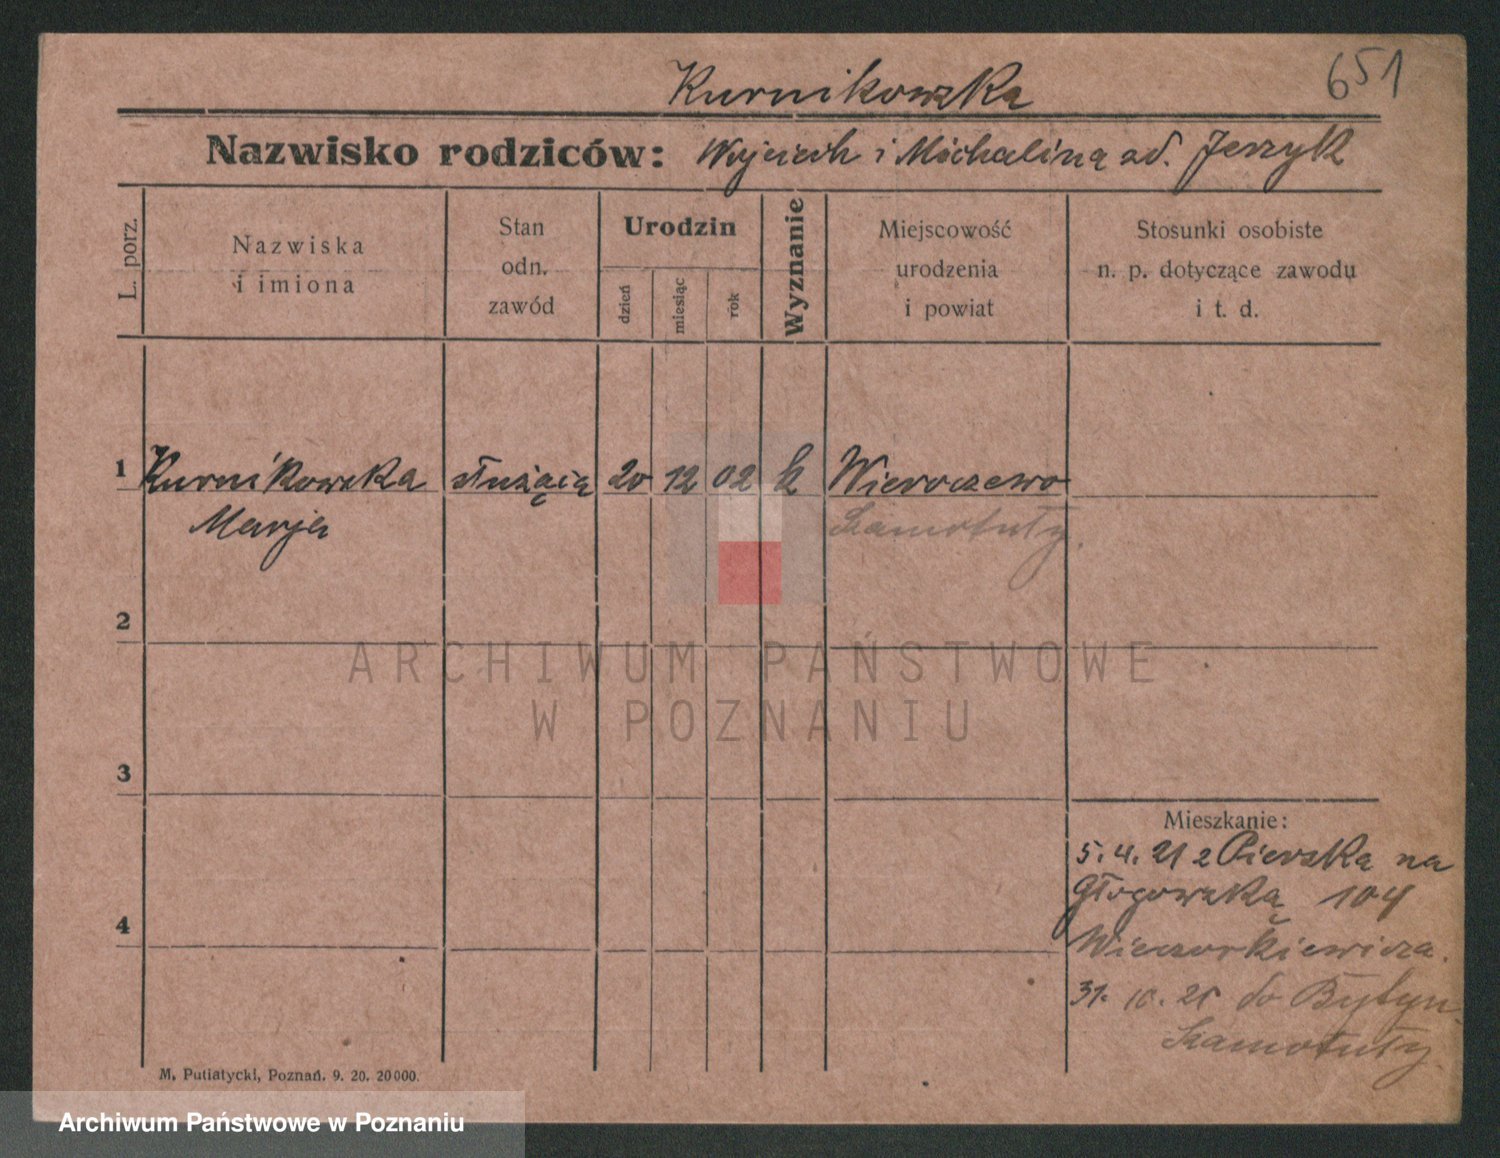 651
Kurnikowska
Nazwisko rodziców: Wojciech i Michalina od. Jerzyk
L. porz.
Nazwiska
i imiona
Stan
odn.
zawód
Urodzin
dzień
miesiąc
rok
Wyznanie
Miejscowość
urodzenia
i powiat
Stosunki osobiste
n. p. dotyczące zawodu
i t. d.
1 Kurnikowska służąca 20 12 02 k Wieroczewo
Marja Szamotuły.
2
ARCHIWUM PAŃSTWOWE
W POZNANIU
3
Mieszkanie:
5. 4. 21 z Pierska na
Głogowską 104
4
Wieczorkiewicza.
31. 10. 21 do Bytyn
Szamotuły.
M. Putiatycki, Poznań. 9. 20. 20000.
Archiwum Państwowe w Poznaniu